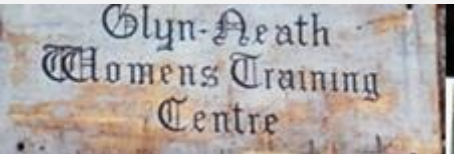 Glyn-Neath
Womens Training
Centre